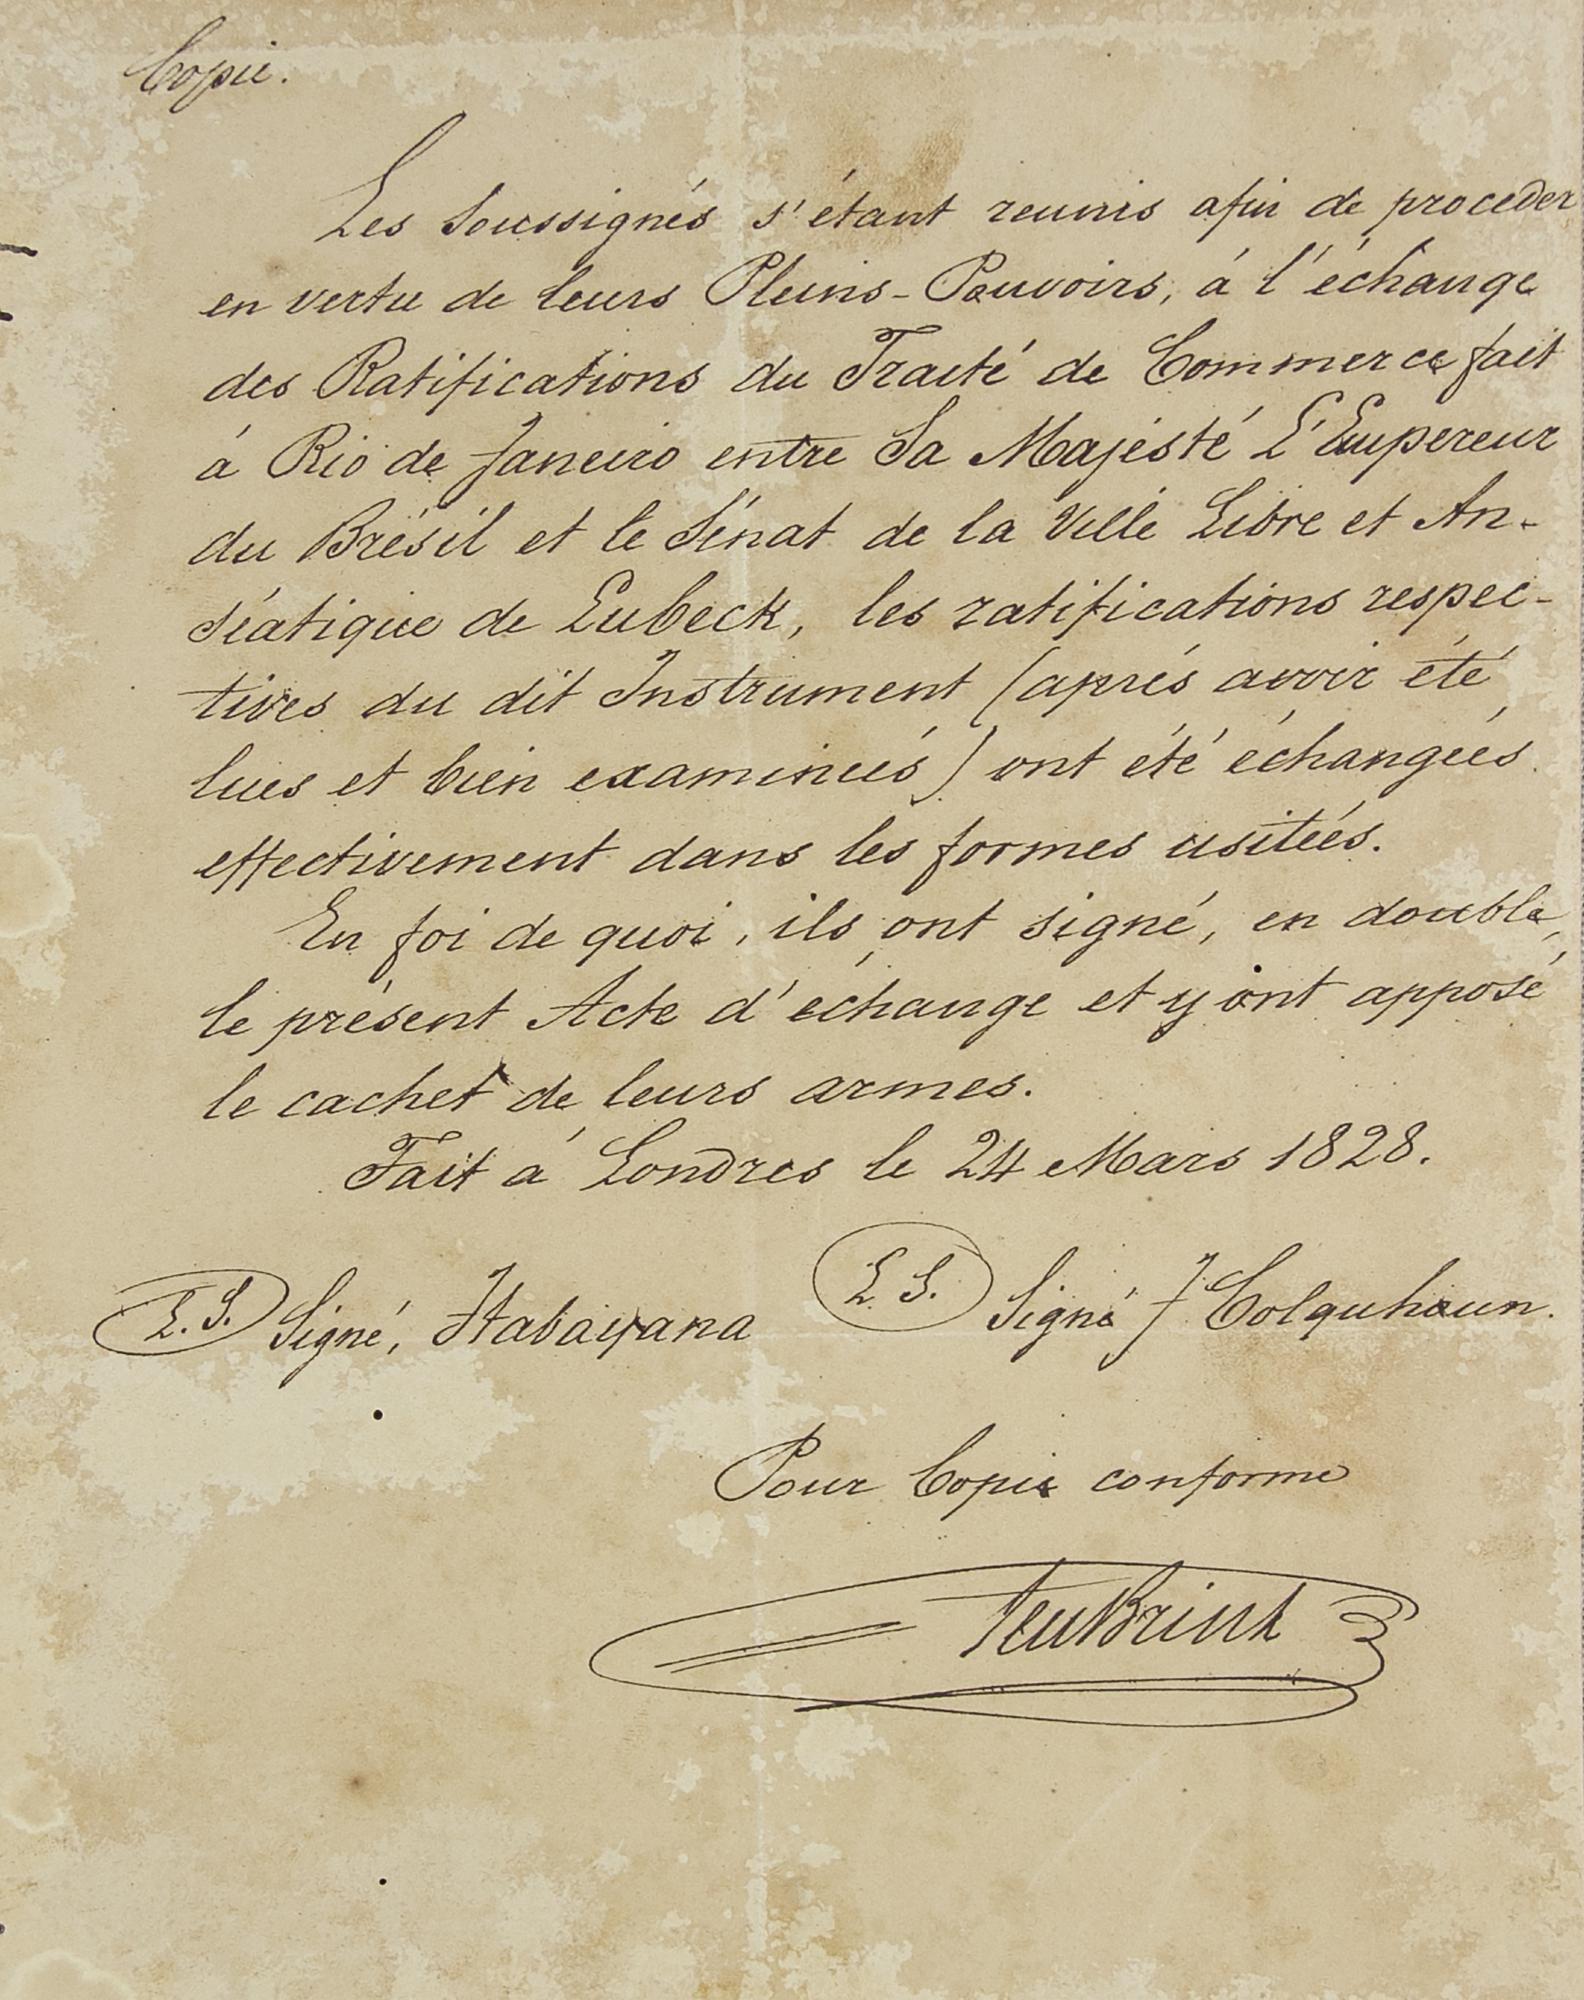 Copie.
Les Soussignés s'étant reunis afin de procéder
en vertu de leurs Pleins-Pouvoirs, á l'échange
des Ratifications du Traité de Commerce fait
á Rio de Janeiro entre Sa Majesté L'Empereur
du Brésil et le Sénat de la Ville Libre et An-
séatique de Lubeck, les ratifications respec-
tives du dit Instrument (aprés avoir été
lues et bien examineés) ont été échangeés
effectivement dans les formes usiteés.
En foi de quoi, ils ont signé, en double,
le présent Acte d'échange et y ont apposé
le cachet de leurs armes.
Fait á Londres le 24 Mars 1828.
L.S. Signé, Itabayana L S. Signé J Colquhoun.
Pour Copie conforme